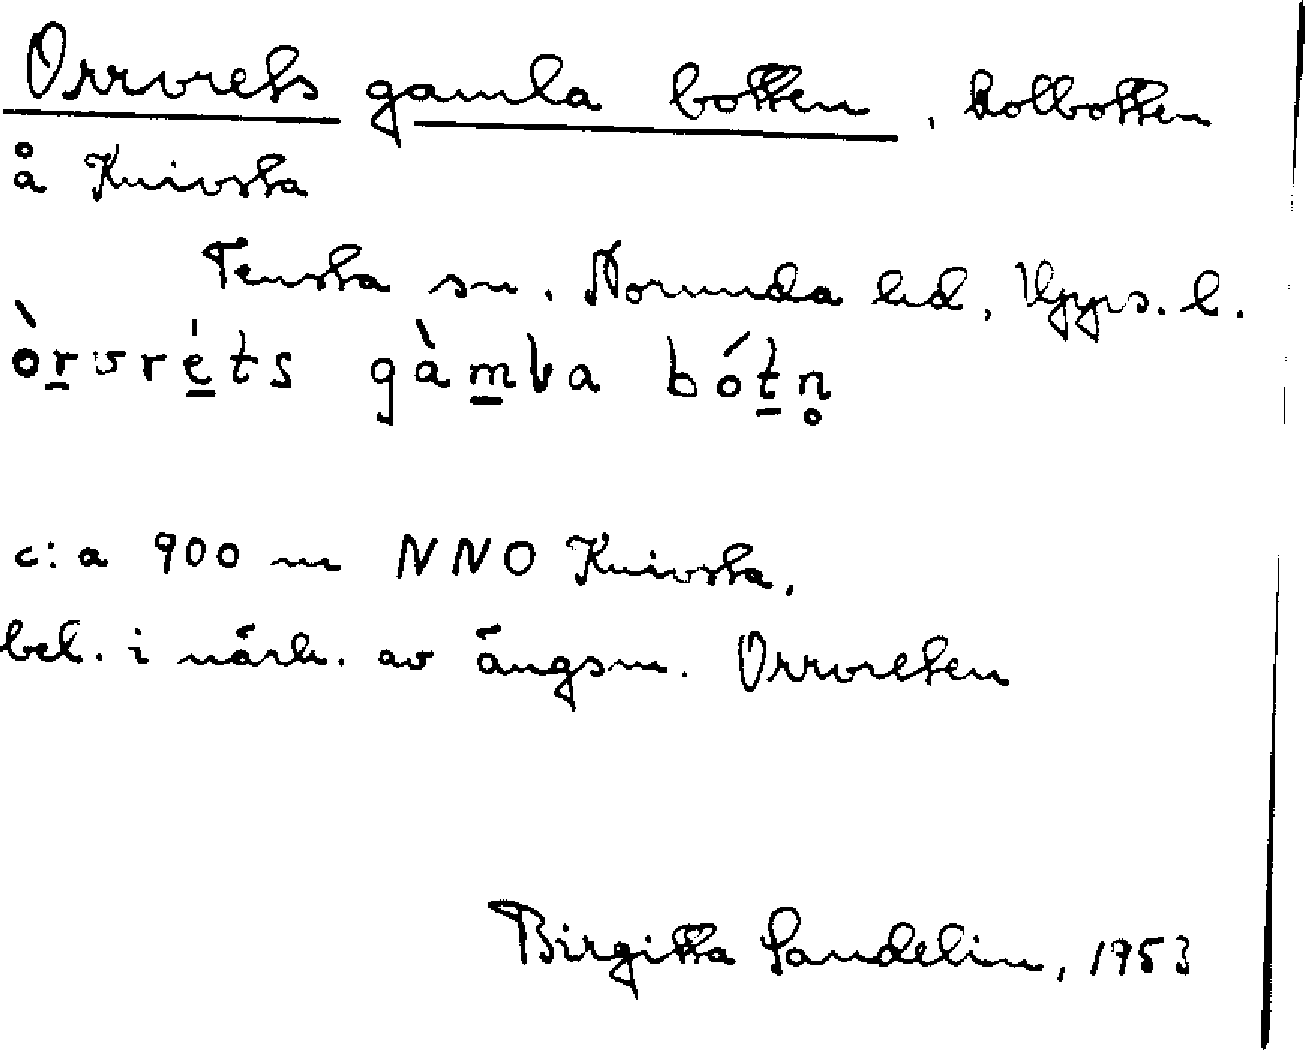 Orrvrets gamla botten, kolbotten
å Knivsta
Tensta sn. Norunda hd, Upps. l.
òrvréts gàmla bótn̥
c:a 900 m NNO Knivsta.
bel. i närh. av ängsm. Orrvreten
Birgitta Sandelin, 1953